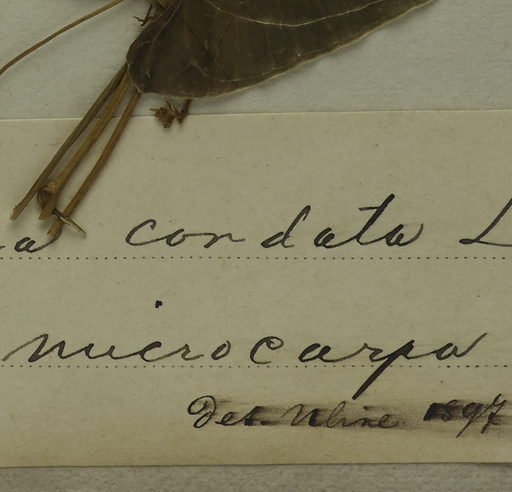 a cordata L
microcarpa
Det. Uline 1897